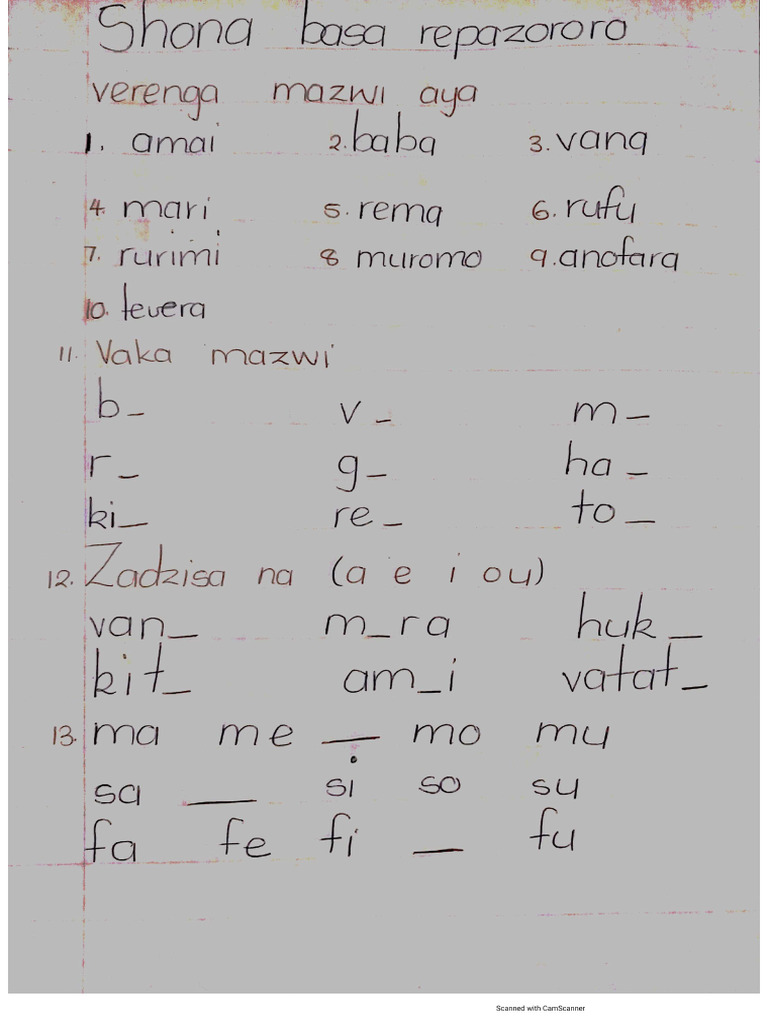 Shona basa repazororo
verenga mazwi aya
1. amai 2. baba 3. vana
4. mari 5. rema 6. rufu
7. rurimi 8 muromo 9. anofara
10. tevera
11. Vaka mazwi
b_ v_ m_
r_ g_ ha_
ki_ re_ to_
12. Zadzisa na (a e i o u)
van_ m_ra huk_
kit_ am_i vatat_
13. ma me __ mo mu
sa __ si so su
fa fe fi __ fu
Scanned with CamScanner